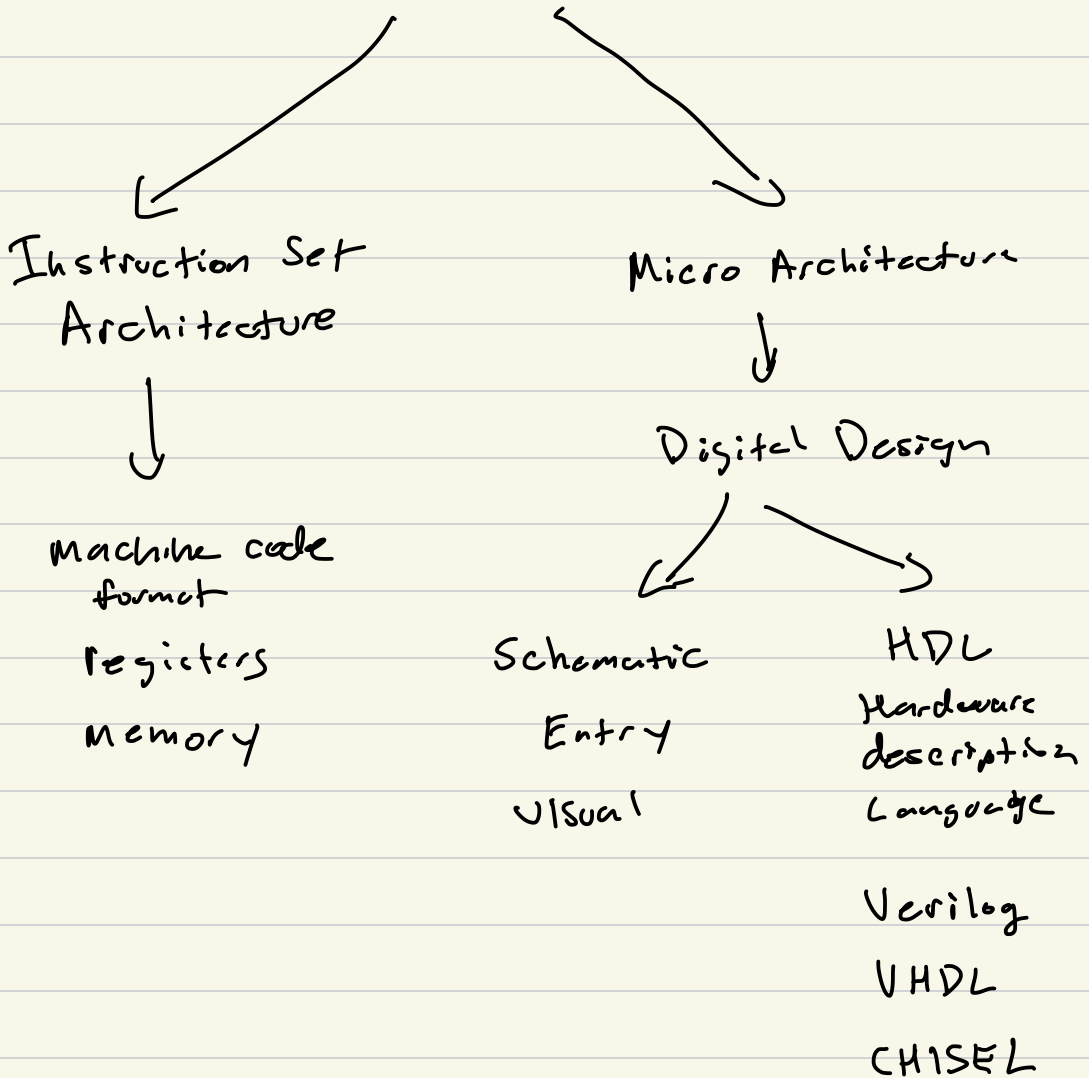 Instruction Set
Architecture
Machine code
format
registers
Memory
Micro Architecture
Digital Design
Schematic
Entry
Visual
HDL
Hardware
description
Language
Verilog
VHDL
CHISEL